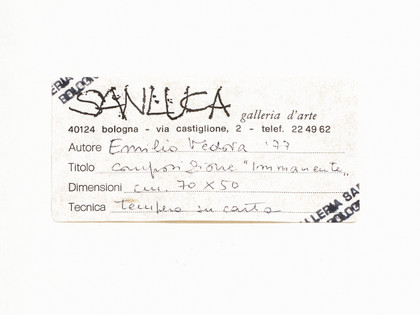 SANLUCA galleria d'arte
40124 bologna - via castiglione, 2 - telef. 22 49 62
Autore Emilio Vedova '77
Titolo composizione "Immanente"
Dimensioni cm. 70 x 50
Tecnica tempera su carta
LLERIA SA
BOLOG